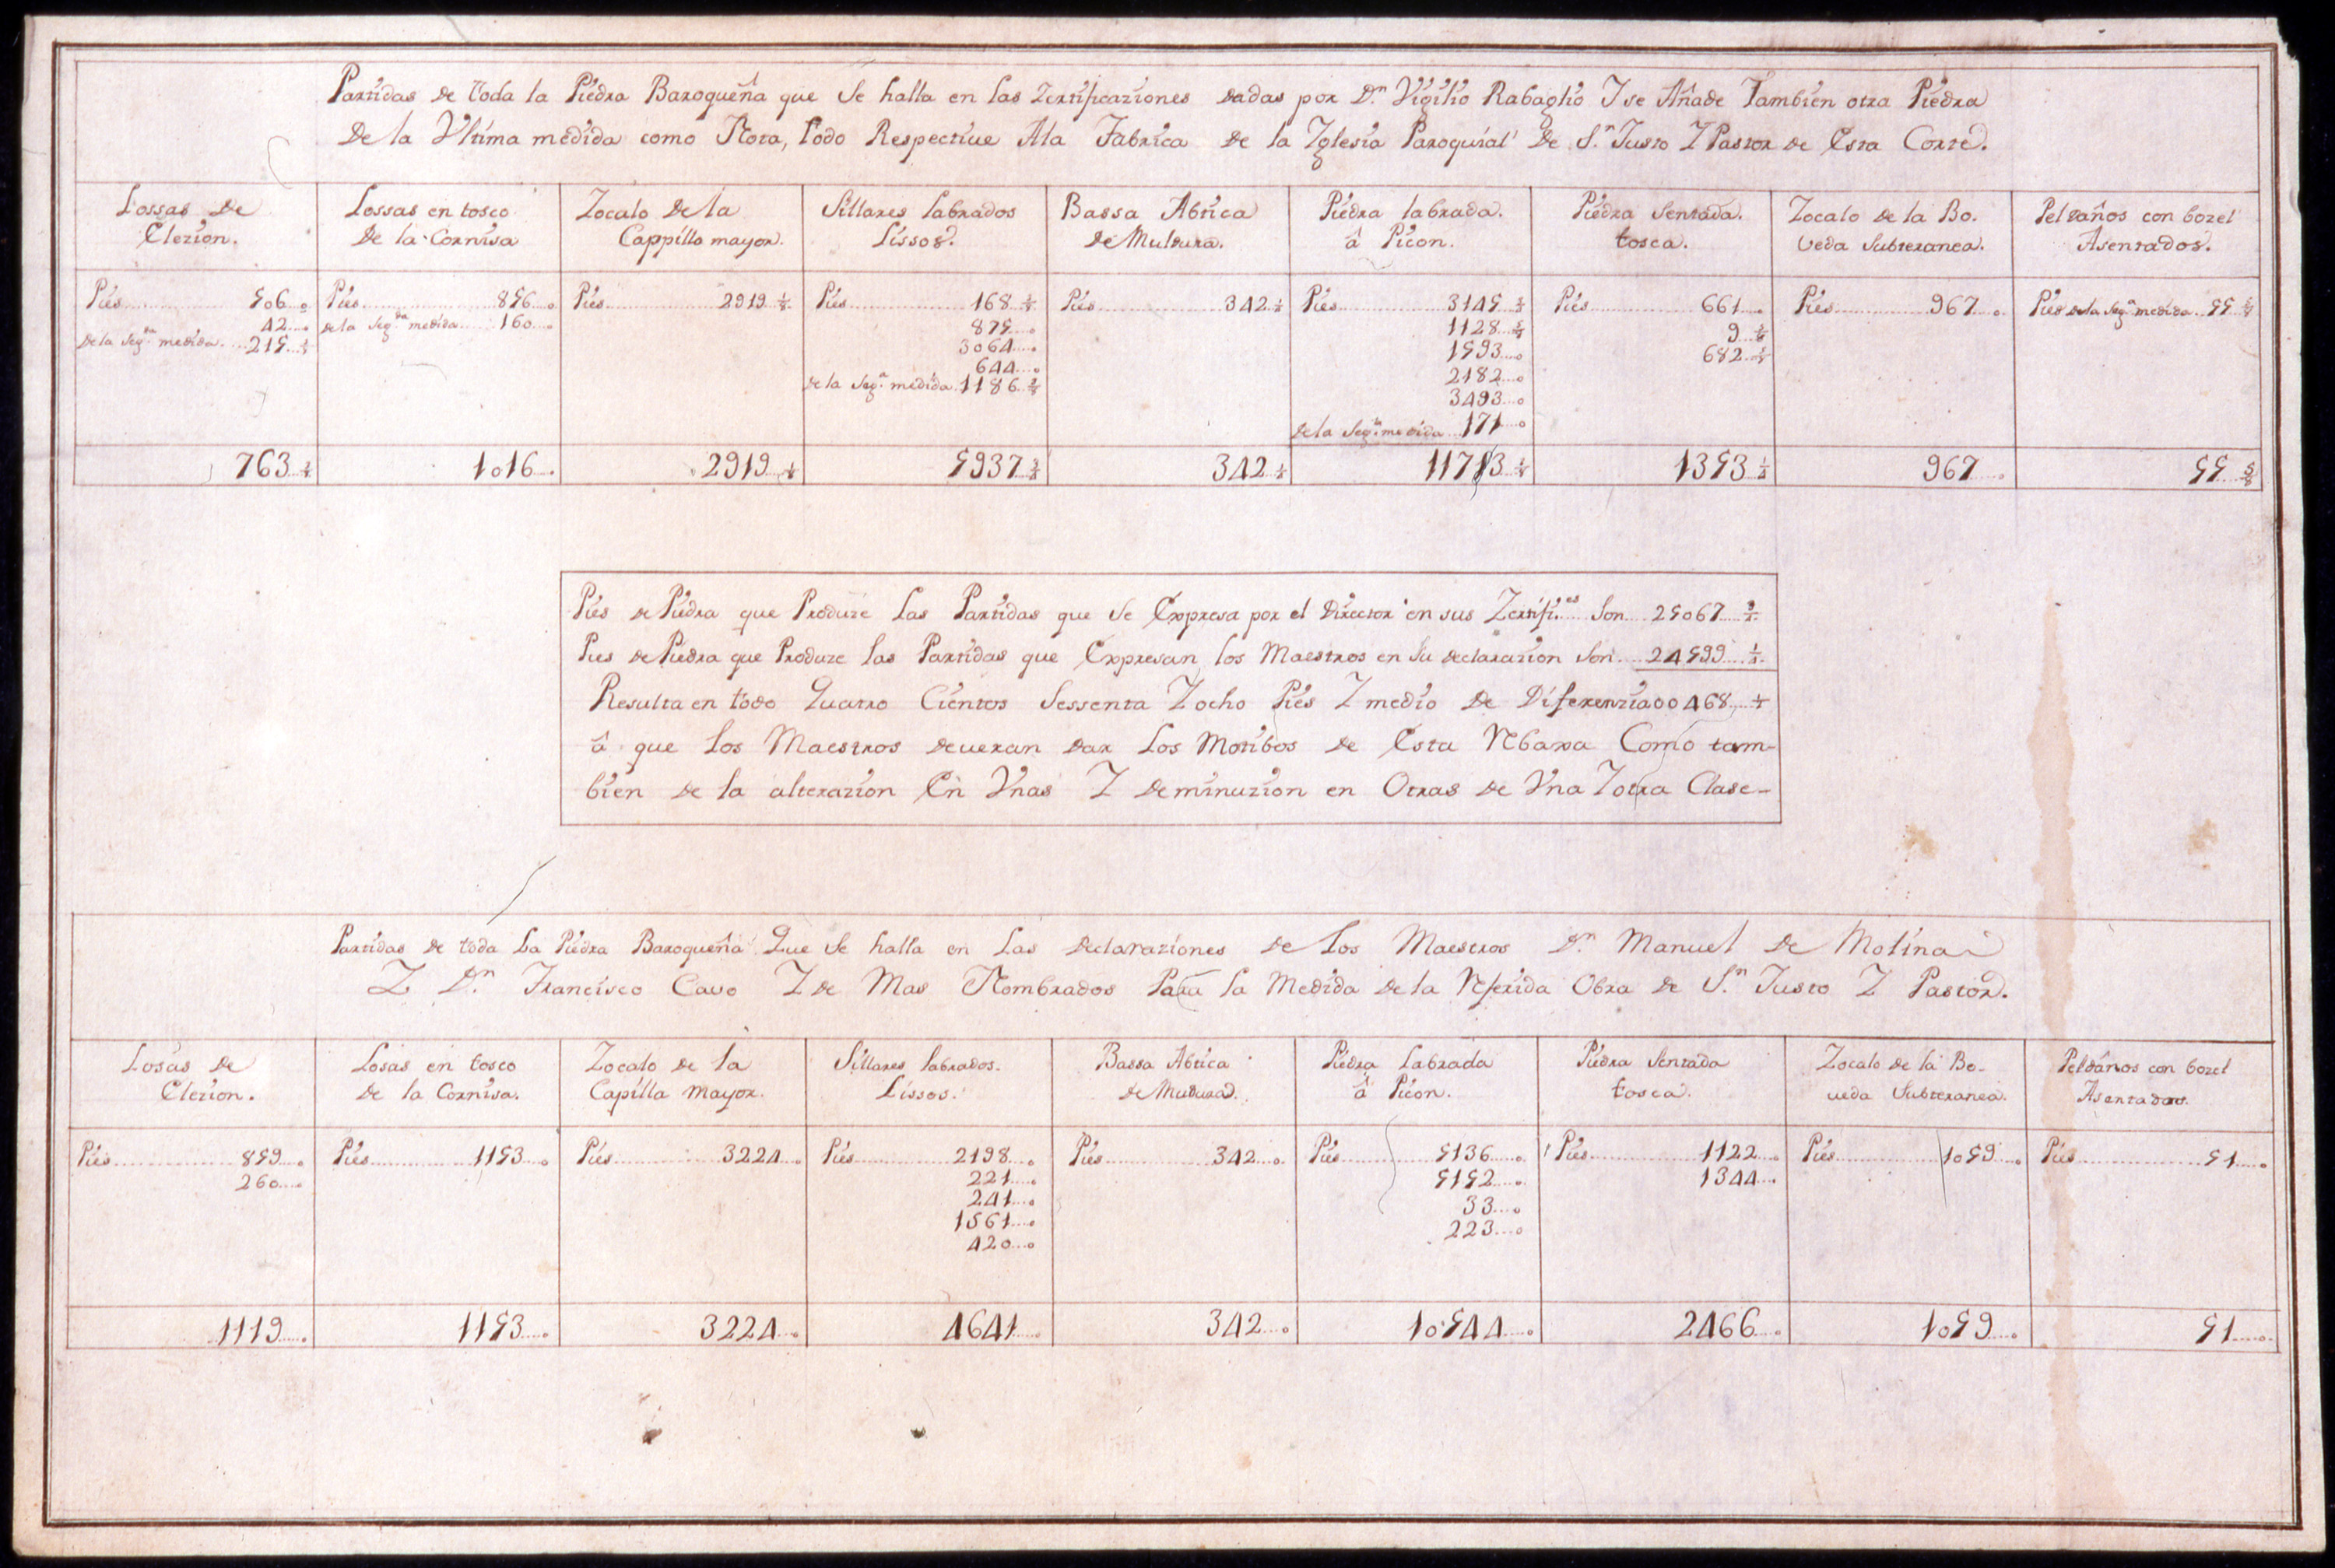 Partidas de toda la Piedra Baroqueña que se halla en las Zertificaziones dadas por Dn. Vigilio Rabaglio I se Añade Tambien otra Piedra
De la Vltima medida como Nota, todo Respective Ala Fabrica de la Iglesia Paroquial De Sn. Justo I Pastor de Esta Corte.
Lossas De Clezion.
Lossas en tosco De la Cornisa
Zocalo De la Cappilla mayor.
Sillares labrados Lissos.
Bassa Abtica De Muldura.
Piedra labrada. â Picon.
Piedra Sentada. tosca.
Zocalo de la Bo. veda Subteranea.
Peldaños con bozel Asentados.
Pies 506 0
42 0
De la Segda. medida 215
763
Pies 856 0
de la Segda. medida 160 0
1016
Pies 2919
2919
Pies 168
875 0
3064
644 0
de la Sega. medida 1186
5937
Pies 342
342
Pies 3145
1128
1593 0
2182 0
3493 0
de la Sega. medida 171 0
11713
Pies 661
9
682
1353
Pies 967 0
967
Pies de la Sega. medida 55
55
Pies de Piedra que Produze Las Partidas que se Expresa por el Director en sus Zertifi.es Son 25067
Pies de Piedra que Produze las Partidas que Expresan los Maestros en Su declarazion Son 24599
Resulta en todo Quatro Cientos Sessenta I ocho Pies I medio de Diferenzia 00468
â que los Maestros deueran dar los Motibos de Esta Rbaxa Como tam-
bien de la alterazion En Vnas I deminuzion en Otras de Vna I otra Clase-
Partidas de toda La Piedra Baroqueña Que se halla en Las Declaraziones de Los Maestros Dn. Manuel de Molina
I Dn. Francisco Cavo I de Mas Nombrados Para la Medida de la Rferida Obra de Sn. Justo I Pastor.
Losas de Clezion.
Losas en tosco de la Cornisa.
Zocalo de la Capilla Mayor.
Sillares labrados. Lissos.
Bassa Abtica de Muldura.
Piedra Labrada â Picon.
Piedra Sentada tosca.
Zocalo de la Bo- ueda Subteranea.
Peldaños con bozel Asentados.
Pies 859 0
260 0
1119
Pies 1153 0
1153
Pies 3224 0
3224
Pies 2198 0
221 0
241 0
1561 0
420 0
4641
Pies 342 0
342 0
Pies 5136 0
5152 0
33 0
223 0
10544 0
Pies 1122 0
1344
2466
Pies 1059 0
1059 0
Pies 51 0
51 0